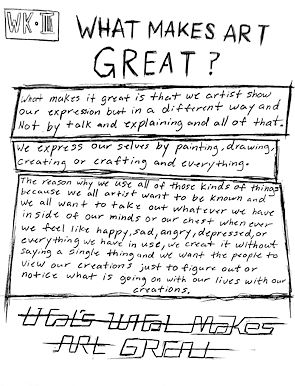 WK·III
WHAT MAKES ART
GREAT?
What makes it great is that we artist show
our expression but in a different way and
Not by talk and explaining and all of that.
We express our selves by painting, drawing,
creating or crafting and everything.
The reason why we use all of those kinds of things
because we all artist want to be known and
we all want to take out whatever we have
in side of our minds or our chest when ever
we feel like happy, sad, angry, depressed, or
everything we have in use, we creat it without
saying a single thing and we want the people to
view our creations just to figure out or
notice what is going on with our lives with our
creations.
That's What Makes
Art GREAT